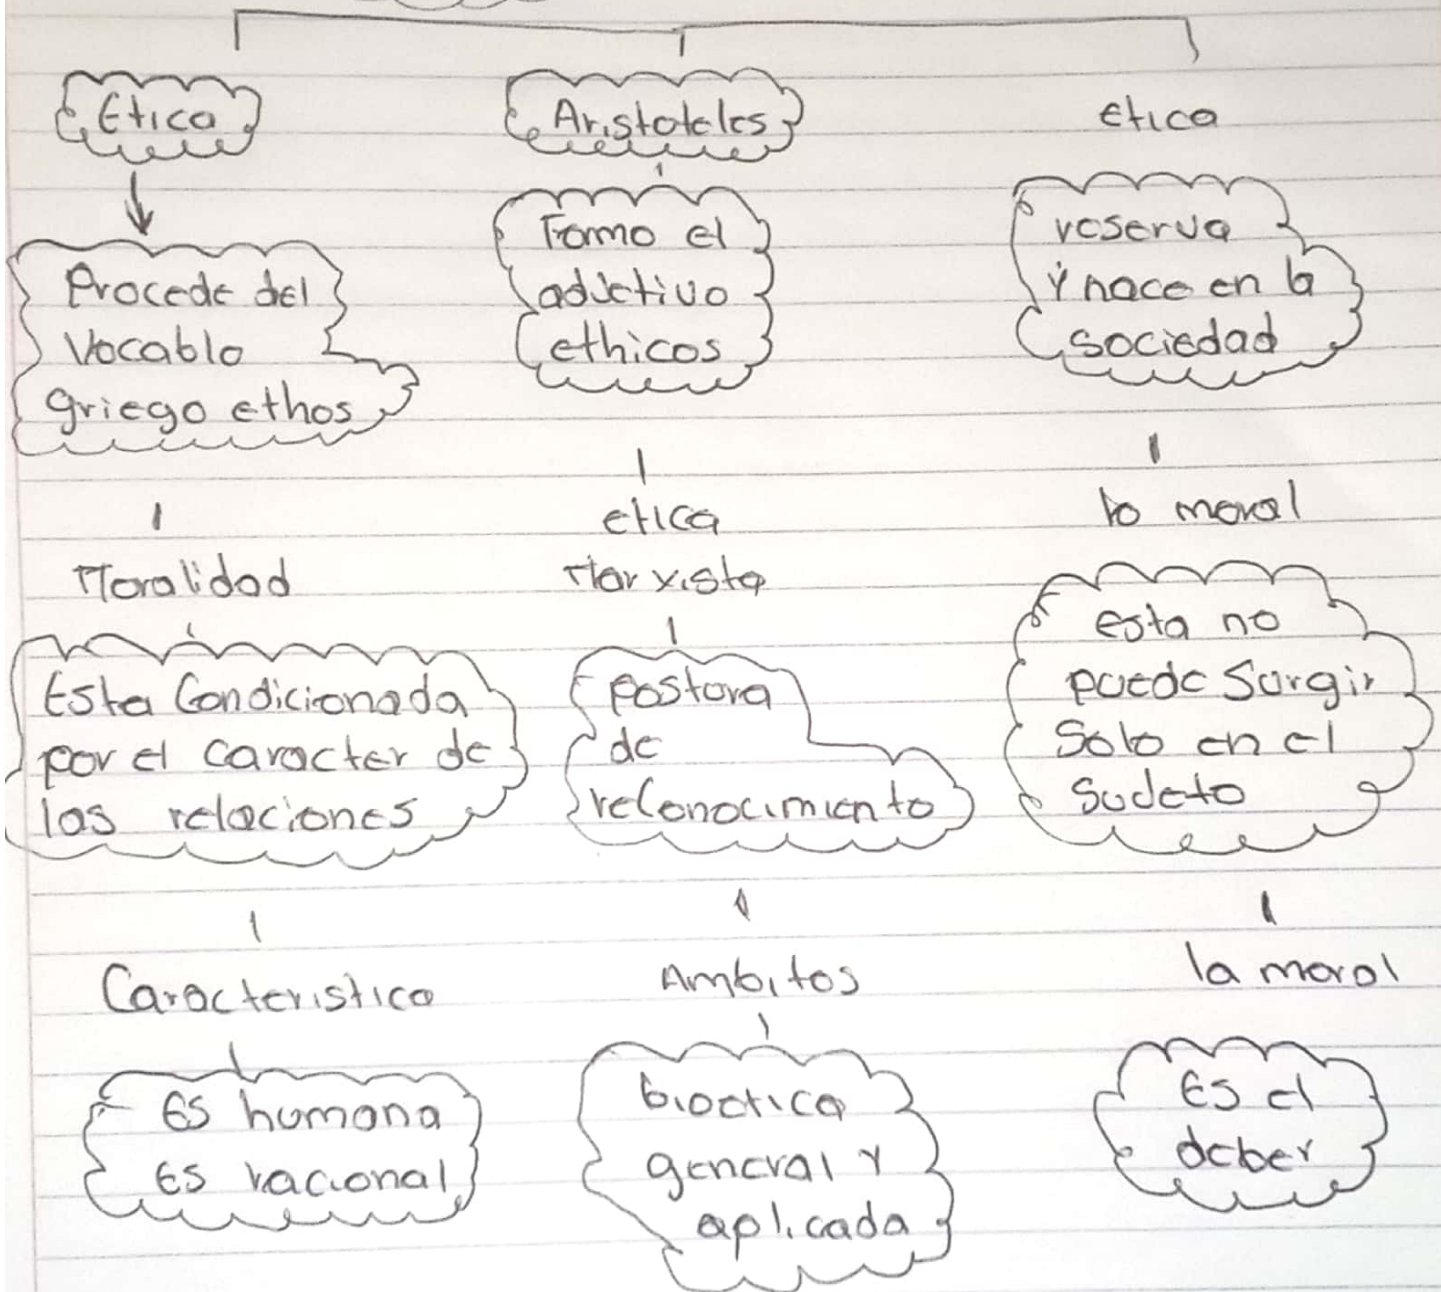 Etica
Procede del
Vocablo
griego ethos
Moralidad
Esta Condicionada
por el caracter de
las relaciones
Caracteristica
Es humana
Es racional
Aristoteles
Formo el
adjetivo
ethicos
etica
Marxista
postura
de
reconocimiento
Ambitos
bioetica
general y
aplicada
etica
reserva
y nace en la
sociedad
lo moral
esta no
puede Surgir
Solo en el
Sudeto
la moral
Es el
deber